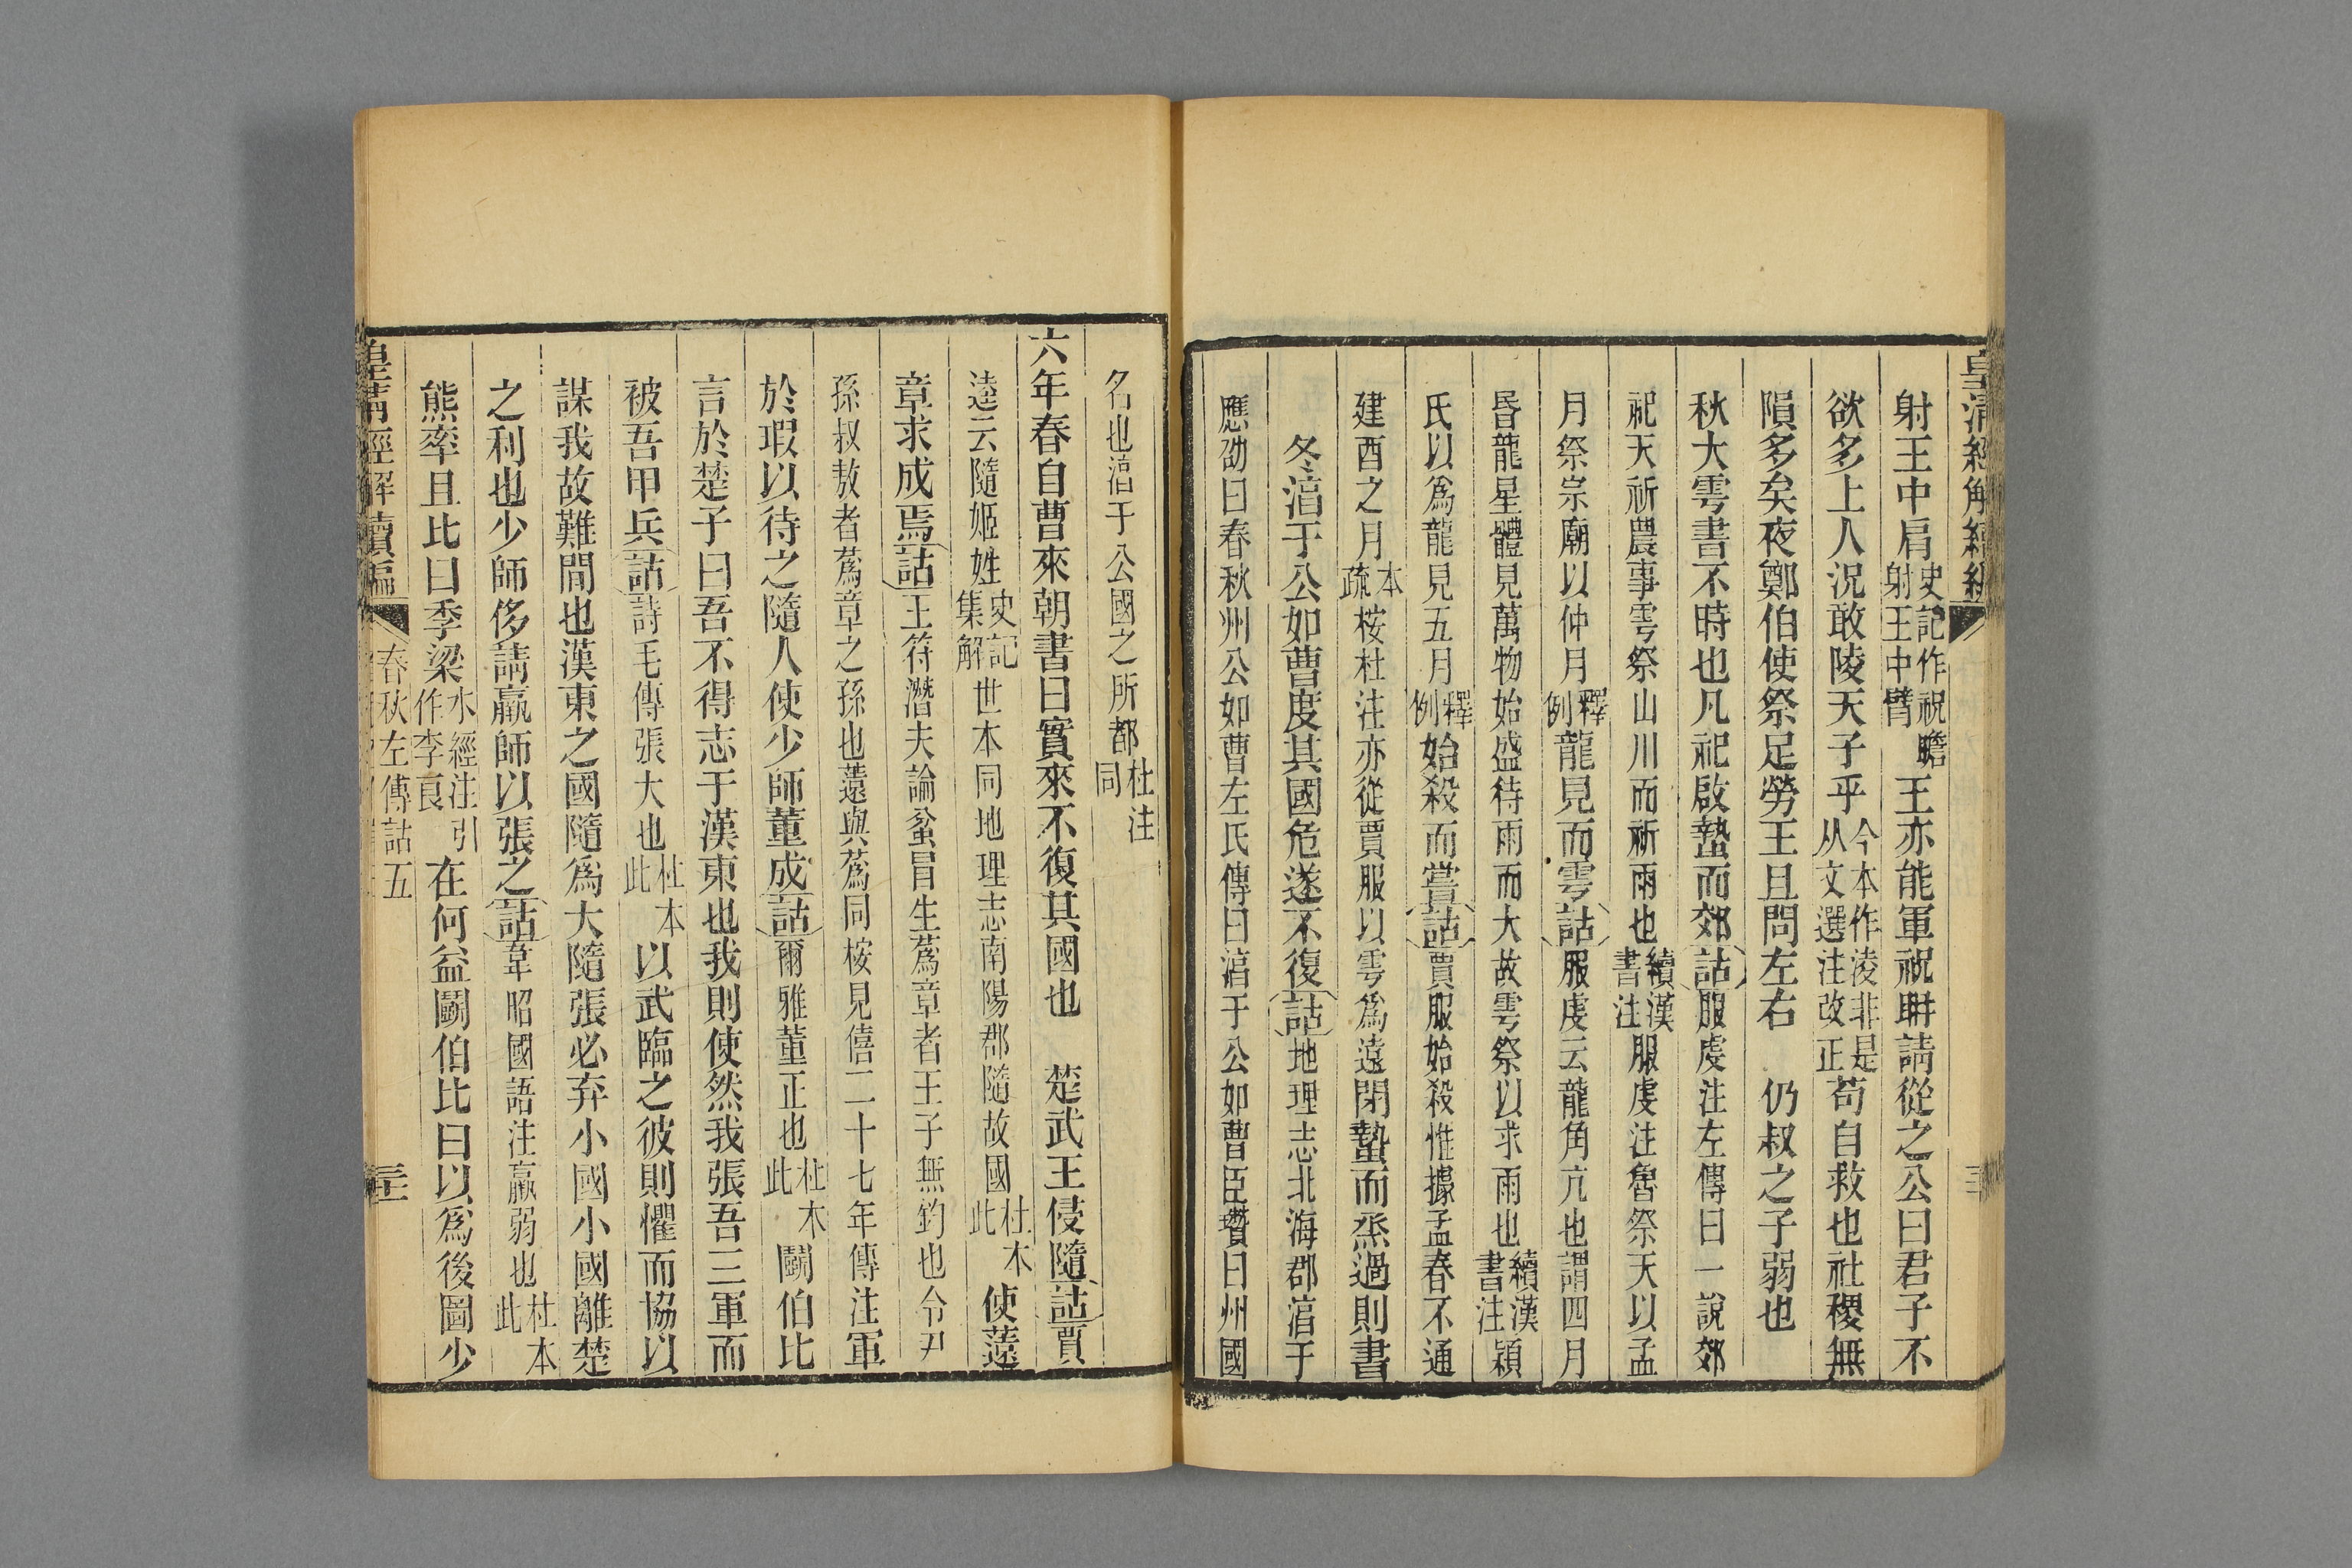 皇清經解續編
射王中肩史記作祝瞻射王中臂王亦能軍祝聃請從之公曰君子不
欲多上人況敢陵天子乎今本作淩非是从文選注改正苟自救也社稷無
隕多矣夜鄭伯使祭足勞王且問左右　仍叔之子弱也
秋大雩書不時也凡祀啟蟄而郊詁服虔注左傳曰一說郊
祀天祈農事雩祭山川而祈雨也續漢書注服虔注魯祭天以孟
月祭宗廟以仲月釋例龍見而雩詁服虔云龍角亢也謂四月
昏龍星體見萬物始盛待雨而大故雩祭以求雨也續漢書注穎
氏以爲龍見五月釋例始殺而嘗詁賈服始殺惟據孟春不通
建酉之月本疏桉杜注亦從賈服以雩爲遠閉蟄而烝過則書
冬淯于公如曹度其國危遂不復詁地理志北海郡淯于
應劭曰春秋州公如曹左氏傳曰淯于公如曹臣瓚曰州國
名也淯于公國之所都杜注同
六年春自曹來朝書曰實來不復其國也　楚武王侵隨詁賈
逵云隨姬姓史記集解世本同地理志南陽郡隨故國杜本此使薳
章求成焉詁王符潛夫論蚡冒生蒍章者王子無鈞也令尹
孫叔敖者蒍章之孫也薳與蒍同桉見僖二十七年傳注軍
於瑕以待之隨人使少師董成詁爾雅董正也杜本此鬭伯比
言於楚子曰吾不得志于漢東也我則使然我張吾三軍而
被吾甲兵詁詩毛傳張大也杜本此以武臨之彼則懼而協以
謀我故難閒也漢東之國隨爲大隨張必弃小國小國離楚
之利也少師侈請羸師以張之詁韋昭國語注羸弱也杜本此
熊率且比曰季梁水經注引作李良在何益鬭伯比曰以爲後圖少
皇清經解續編　春秋左傳詁五